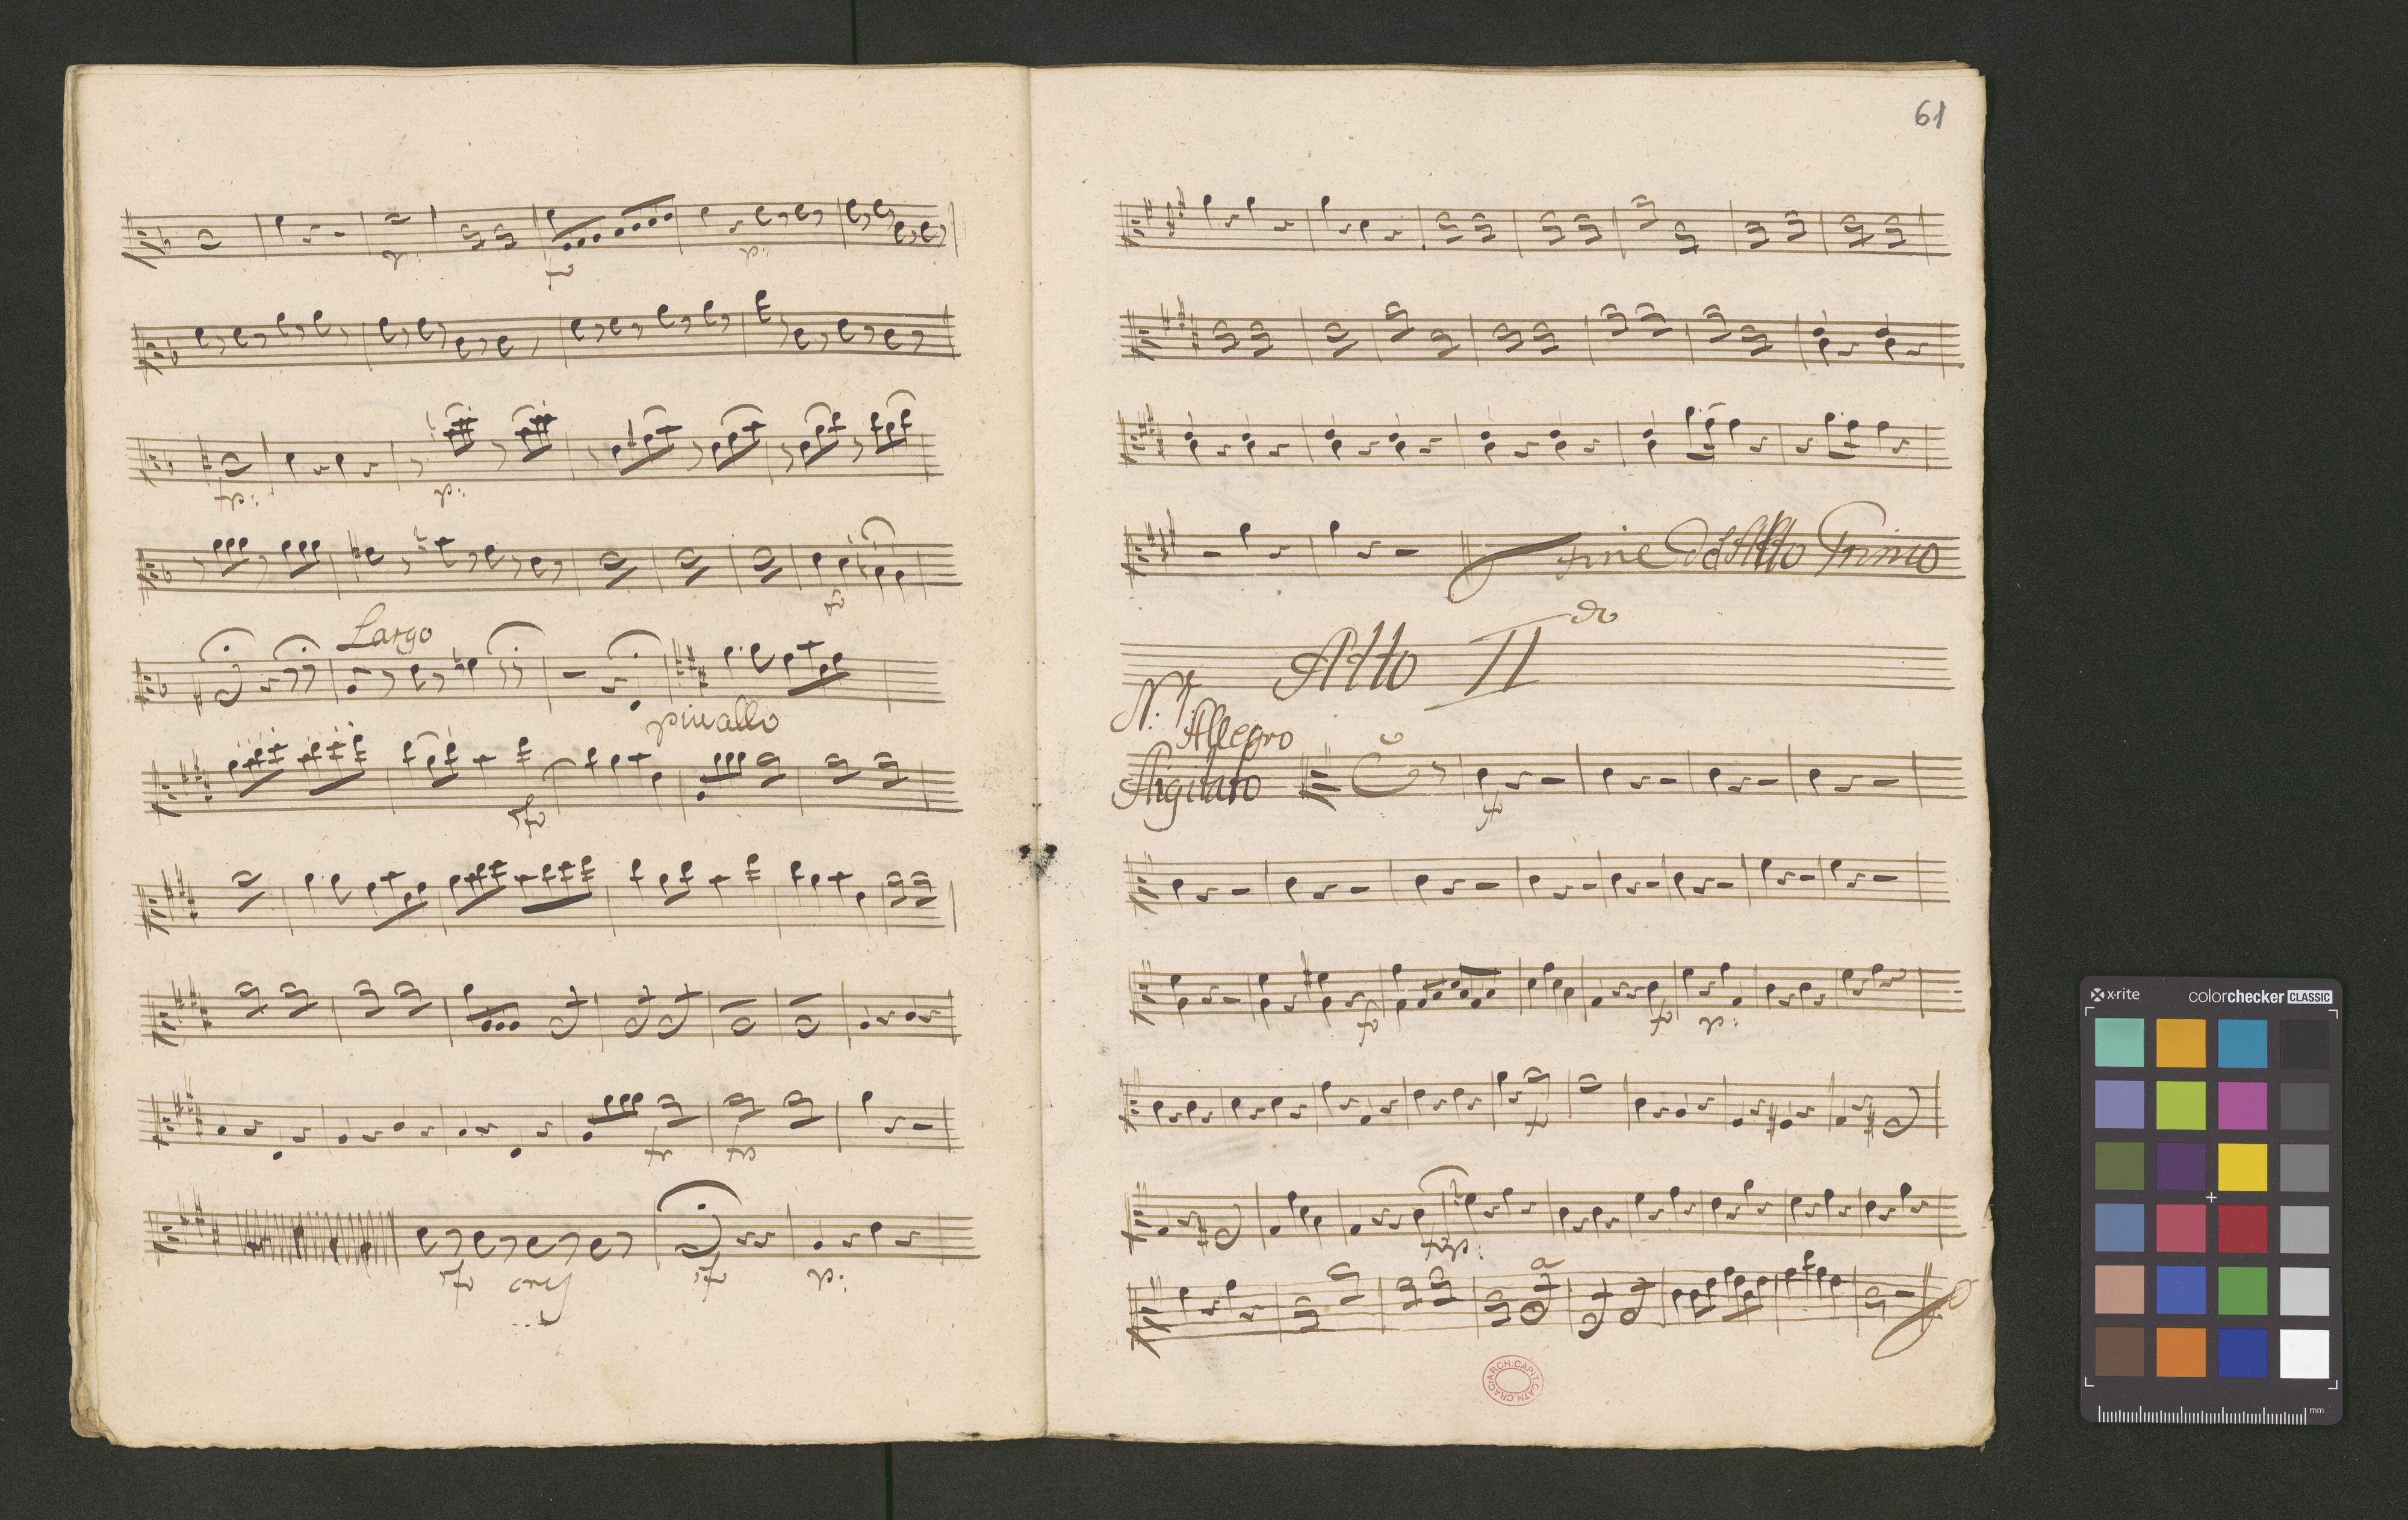 p:
f
p:
fp:
p:
f
Largo
piu allo
sfo
f
sf
sfo cres
sf
p:
61
Fine Dell Atto Primo
Atto II do
N. 7.
Allegro
Aigitato
f
f
f
p:
f
fp:
a
ARCH. CAPIT. CATH. CRAC.
x-rite
colorchecker CLASSIC
mm